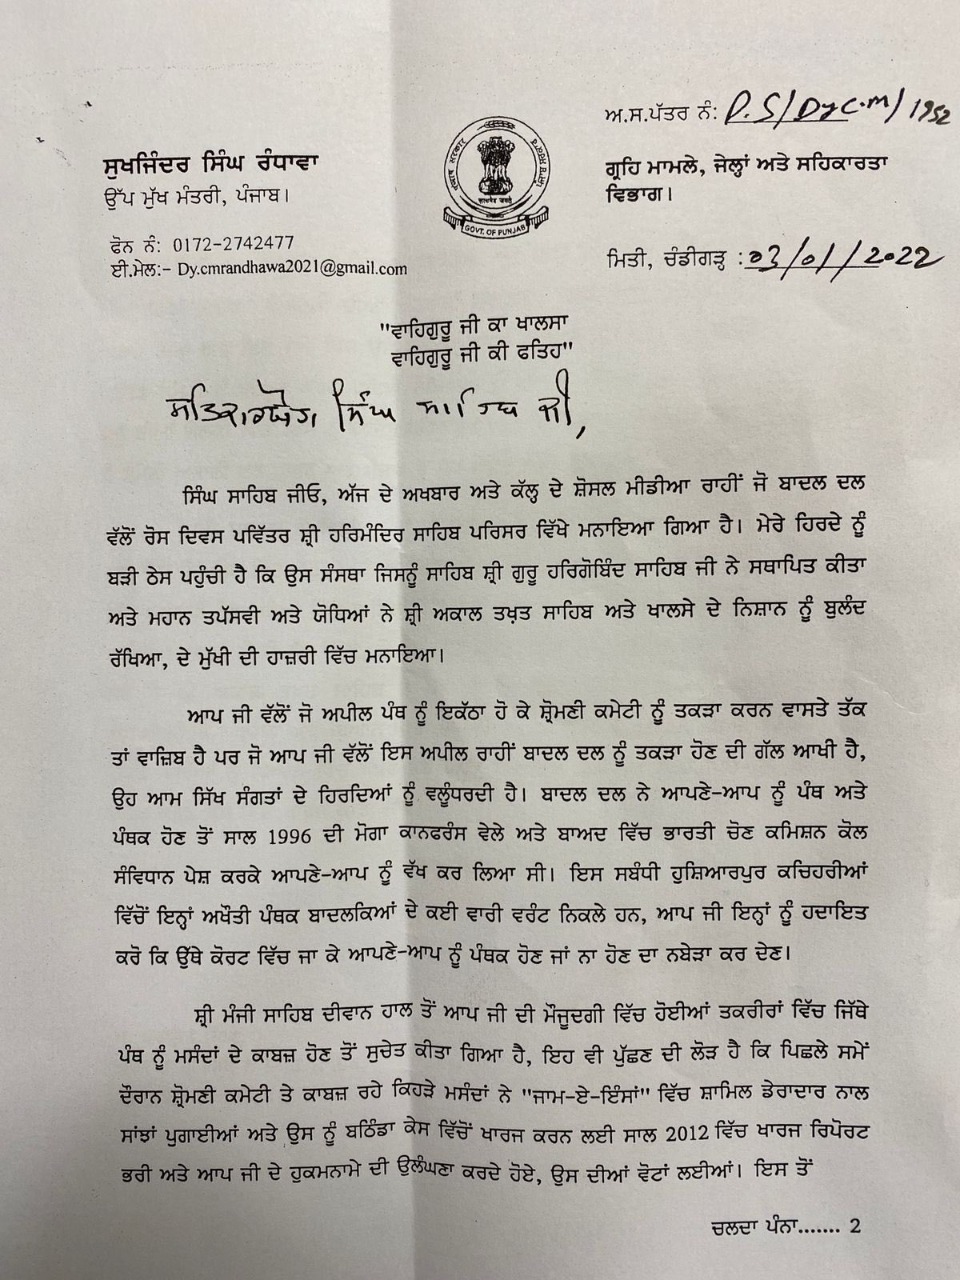 ਅ.ਸ.ਪੱਤਰ ਨੰ: P.S/DyC.M/1952
ਸੁਖਜਿੰਦਰ ਸਿੰਘ ਰੰਧਾਵਾ
ਉੱਪ ਮੁੱਖ ਮੰਤਰੀ, ਪੰਜਾਬ।
ਫੋਨ ਨੰ: 0172-2742477
ਈ.ਮੇਲ:- Dy.cmrandhawa2021@gmail.com
GOVT. OF PUNJAB
ਗ੍ਰਹਿ ਮਾਮਲੇ, ਜੇਲ੍ਹਾਂ ਅਤੇ ਸਹਿਕਾਰਤਾ
ਵਿਭਾਗ।
ਮਿਤੀ, ਚੰਡੀਗੜ੍ਹ :03/01/2022
"ਵਾਹਿਗੁਰੂ ਜੀ ਕਾ ਖਾਲਸਾ
ਵਾਹਿਗੁਰੂ ਜੀ ਕੀ ਫਤਿਹ"
ਸਤਿਕਾਰਯੋਗ ਸਿੰਘ ਸਾਹਿਬ ਜੀ,
ਸਿੰਘ ਸਾਹਿਬ ਜੀਓ, ਅੱਜ ਦੇ ਅਖਬਾਰ ਅਤੇ ਕੱਲ੍ਹ ਦੇ ਸ਼ੋਸਲ ਮੀਡੀਆ ਰਾਹੀਂ ਜੋ ਬਾਦਲ ਦਲ
ਵੱਲੋਂ ਰੋਸ ਦਿਵਸ ਪਵਿੱਤਰ ਸ਼੍ਰੀ ਹਰਿਮੰਦਿਰ ਸਾਹਿਬ ਪਰਿਸਰ ਵਿੱਖੇ ਮਨਾਇਆ ਗਿਆ ਹੈ। ਮੇਰੇ ਹਿਰਦੇ ਨੂੰ
ਬੜੀ ਠੇਸ ਪਹੁੰਚੀ ਹੈ ਕਿ ਉਸ ਸੰਸਥਾ ਜਿਸਨੂੰ ਸਾਹਿਬ ਸ਼੍ਰੀ ਗੁਰੂ ਹਰਿਗੋਬਿੰਦ ਸਾਹਿਬ ਜੀ ਨੇ ਸਥਾਪਿਤ ਕੀਤਾ
ਅਤੇ ਮਹਾਨ ਤਪੱਸਵੀ ਅਤੇ ਯੋਧਿਆਂ ਨੇ ਸ਼੍ਰੀ ਅਕਾਲ ਤਖ਼ਤ ਸਾਹਿਬ ਅਤੇ ਖਾਲਸੇ ਦੇ ਨਿਸ਼ਾਨ ਨੂੰ ਬੁਲੰਦ
ਰੱਖਿਆ, ਦੇ ਮੁੱਖੀ ਦੀ ਹਾਜ਼ਰੀ ਵਿੱਚ ਮਨਾਇਆ।
ਆਪ ਜੀ ਵੱਲੋਂ ਜੋ ਅਪੀਲ ਪੰਥ ਨੂੰ ਇਕੱਠਾ ਹੋ ਕੇ ਸ਼੍ਰੋਮਣੀ ਕਮੇਟੀ ਨੂੰ ਤਕੜਾ ਕਰਨ ਵਾਸਤੇ ਤੱਕ
ਤਾਂ ਵਾਜ਼ਿਬ ਹੈ ਪਰ ਜੋ ਆਪ ਜੀ ਵੱਲੋਂ ਇਸ ਅਪੀਲ ਰਾਹੀਂ ਬਾਦਲ ਦਲ ਨੂੰ ਤਕੜਾ ਹੋਣ ਦੀ ਗੱਲ ਆਖੀ ਹੈ,
ਉਹ ਆਮ ਸਿੱਖ ਸੰਗਤਾਂ ਦੇ ਹਿਰਦਿਆਂ ਨੂੰ ਵਲੂੰਧਰਦੀ ਹੈ। ਬਾਦਲ ਦਲ ਨੇ ਆਪਣੇ-ਆਪ ਨੂੰ ਪੰਥ ਅਤੇ
ਪੰਥਕ ਹੋਣ ਤੋਂ ਸਾਲ 1996 ਦੀ ਮੋਗਾ ਕਾਨਫਰੰਸ ਵੇਲੇ ਅਤੇ ਬਾਅਦ ਵਿੱਚ ਭਾਰਤੀ ਚੋਣ ਕਮਿਸ਼ਨ ਕੋਲ
ਸੰਵਿਧਾਨ ਪੇਸ਼ ਕਰਕੇ ਆਪਣੇ-ਆਪ ਨੂੰ ਵੱਖ ਕਰ ਲਿਆ ਸੀ। ਇਸ ਸਬੰਧੀ ਹੁਸ਼ਿਆਰਪੁਰ ਕਚਿਹਰੀਆਂ
ਵਿੱਚੋਂ ਇਨ੍ਹਾਂ ਅਖੌਤੀ ਪੰਥਕ ਬਾਦਲਕਿਆਂ ਦੇ ਕਈ ਵਾਰੀ ਵਰੰਟ ਨਿਕਲੇ ਹਨ, ਆਪ ਜੀ ਇਨ੍ਹਾਂ ਨੂੰ ਹਦਾਇਤ
ਕਰੋ ਕਿ ਉੱਥੇ ਕੋਰਟ ਵਿੱਚ ਜਾ ਕੇ ਆਪਣੇ-ਆਪ ਨੂੰ ਪੰਥਕ ਹੋਣ ਜਾਂ ਨਾ ਹੋਣ ਦਾ ਨਬੇੜਾ ਕਰ ਦੇਣ।
ਸ਼੍ਰੀ ਮੰਜੀ ਸਾਹਿਬ ਦੀਵਾਨ ਹਾਲ ਤੋਂ ਆਪ ਜੀ ਦੀ ਮੌਜੂਦਗੀ ਵਿੱਚ ਹੋਈਆਂ ਤਕਰੀਰਾਂ ਵਿੱਚ ਜਿੱਥੇ
ਪੰਥ ਨੂੰ ਮਸੰਦਾਂ ਦੇ ਕਾਬਜ਼ ਹੋਣ ਤੋਂ ਸੁਚੇਤ ਕੀਤਾ ਗਿਆ ਹੈ, ਇਹ ਵੀ ਪੁੱਛਣ ਦੀ ਲੋੜ ਹੈ ਕਿ ਪਿਛਲੇ ਸਮੇਂ
ਦੌਰਾਨ ਸ਼੍ਰੋਮਣੀ ਕਮੇਟੀ ਤੇ ਕਾਬਜ਼ ਰਹੇ ਕਿਹੜੇ ਮਸੰਦਾਂ ਨੇ "ਜਾਮ-ਏ-ਇੰਸਾਂ" ਵਿੱਚ ਸ਼ਾਮਿਲ ਡੇਰਾਦਾਰ ਨਾਲ
ਸਾਂਝਾਂ ਪੁਗਾਈਆਂ ਅਤੇ ਉਸ ਨੂੰ ਬਠਿੰਡਾ ਕੇਸ ਵਿੱਚੋਂ ਖਾਰਜ ਕਰਨ ਲਈ ਸਾਲ 2012 ਵਿੱਚ ਖਾਰਜ ਰਿਪੋਰਟ
ਭਰੀ ਅਤੇ ਆਪ ਜੀ ਦੇ ਹੁਕਮਨਾਮੇ ਦੀ ਉਲੰਘਣਾ ਕਰਦੇ ਹੋਏ, ਉਸ ਦੀਆਂ ਵੋਟਾਂ ਲਈਆਂ। ਇਸ ਤੋਂ
ਚਲਦਾ ਪੰਨਾ....... 2